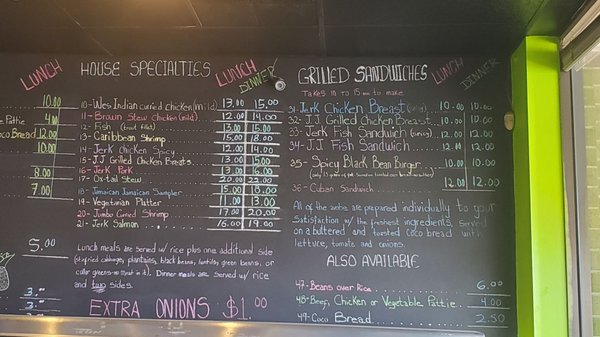 LUNCH
10.00
Pattie 4.00
Coco Bread 12.00
10.00
8.00
7.00
5.00
3.
3.
3.
HOUSE SPECIALTIES LUNCH DINNER
10-Wes Indian curried chicken (mild) 13.00 15.00
11-Brown Stew chicken (mild) 12.00 14.00
12-Fish (trout fillet) 13.00 15.00
13-Caribbean Shrimp 15.00 18.00
14-Jerk Chicken Spicy 12.00 14.00
15-J.J Grilled Chicken Breasts 13.00 15.00
16-Jerk Pork 13.00 16.00
17-Ox-tail Stew 20.00 22.00
18-Jamaican Jamaican Sampler 15.00 18.00
19-Vegetarian Platter 11.00 13.00
20-Jumbo Curried Shrimp 17.00 20.00
21-Jerk Salmon 16.00 19.00
Lunch meals are served w/ rice plus one additional side
(stirfried cabbage, plantains, black beans, lentils, green beans, or
collar greens-no meat in it). Dinner meals are served w/ rice
and two sides.
EXTRA ONIONS $1.00
GRILLED SANDWICHES LUNCH DINNER
TAKES 10 TO 15 min TO COOK
31-Jerk Chicken Breast 10.00 10.00
32-J.J Grilled Chicken Breast 10.00 10.00
33-Jerk Fish Sandwich 10.00 10.00
34-J.J Fish Sandwich 10.00 10.00
35-Spicy Black Bean Burger 10.00 10.00
36-Cuban Sandwich 12.00 12.00
All of the are prepared individually to your
Satisfaction w/ the freshest ingredients served
on a buttered and toasted coco bread with
lettuce, tomato and onions.
ALSO AVAILABLE
47-Beans over Rice 6.00
48-Beef, Chicken or Vegetable Pattie 4.00
49-Coco Bread 2.50